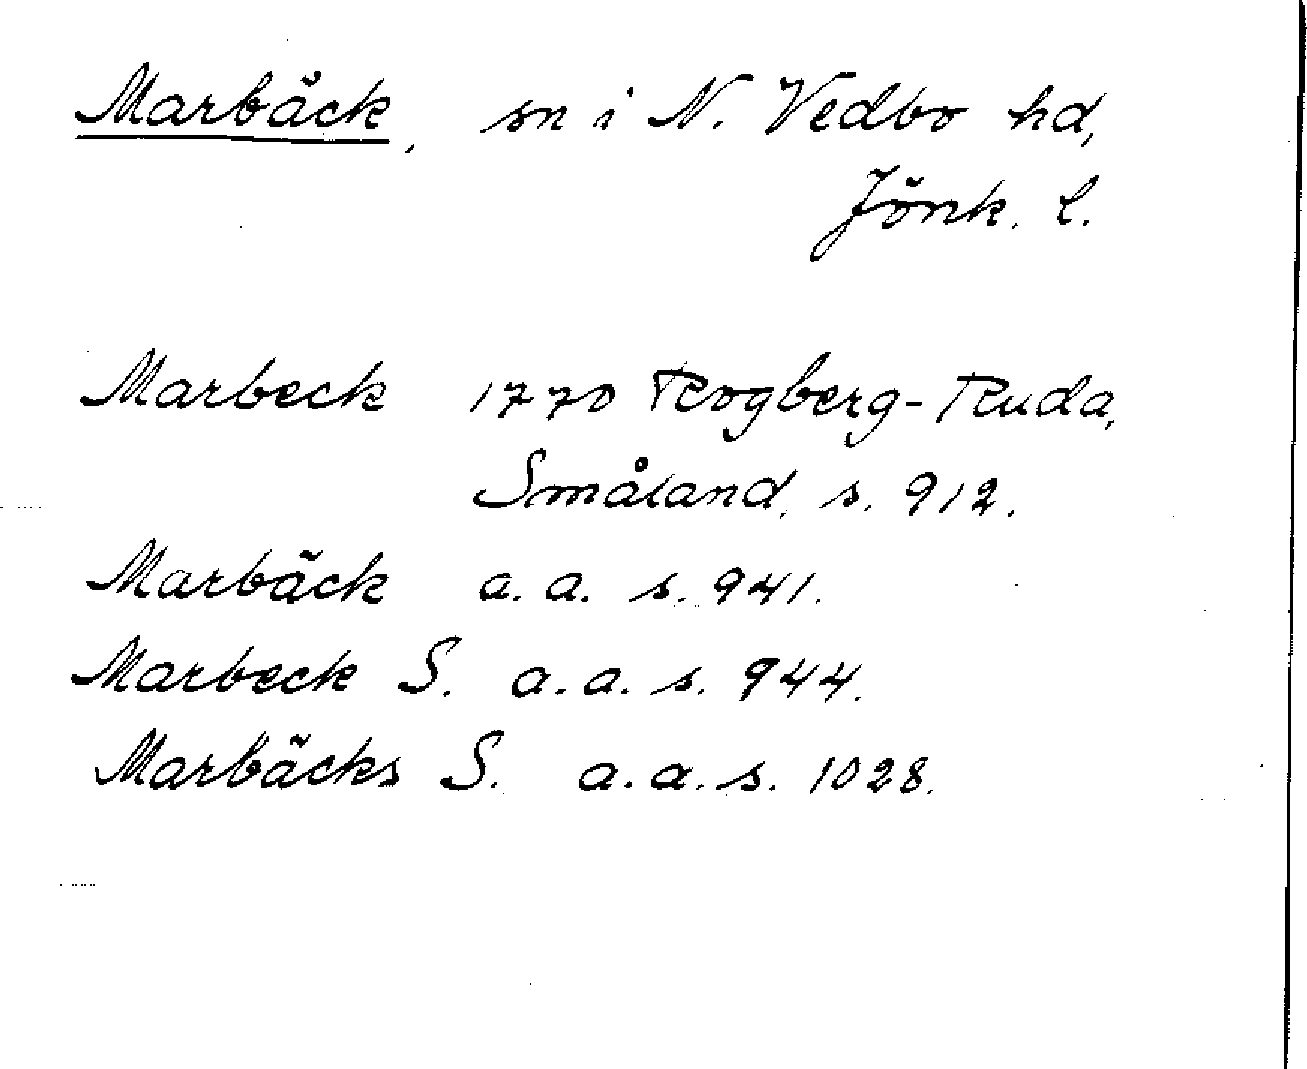 Marbäck, sn i N. Vedbo hd,
Jönk. l.
Marbeck 1770 Rogberg-Ruda,
Småland, s. 912.
Marbäck a. a. s. 941.
Marbeck S. a. a. s. 944.
Marbäcks S. a. a. s. 1028.